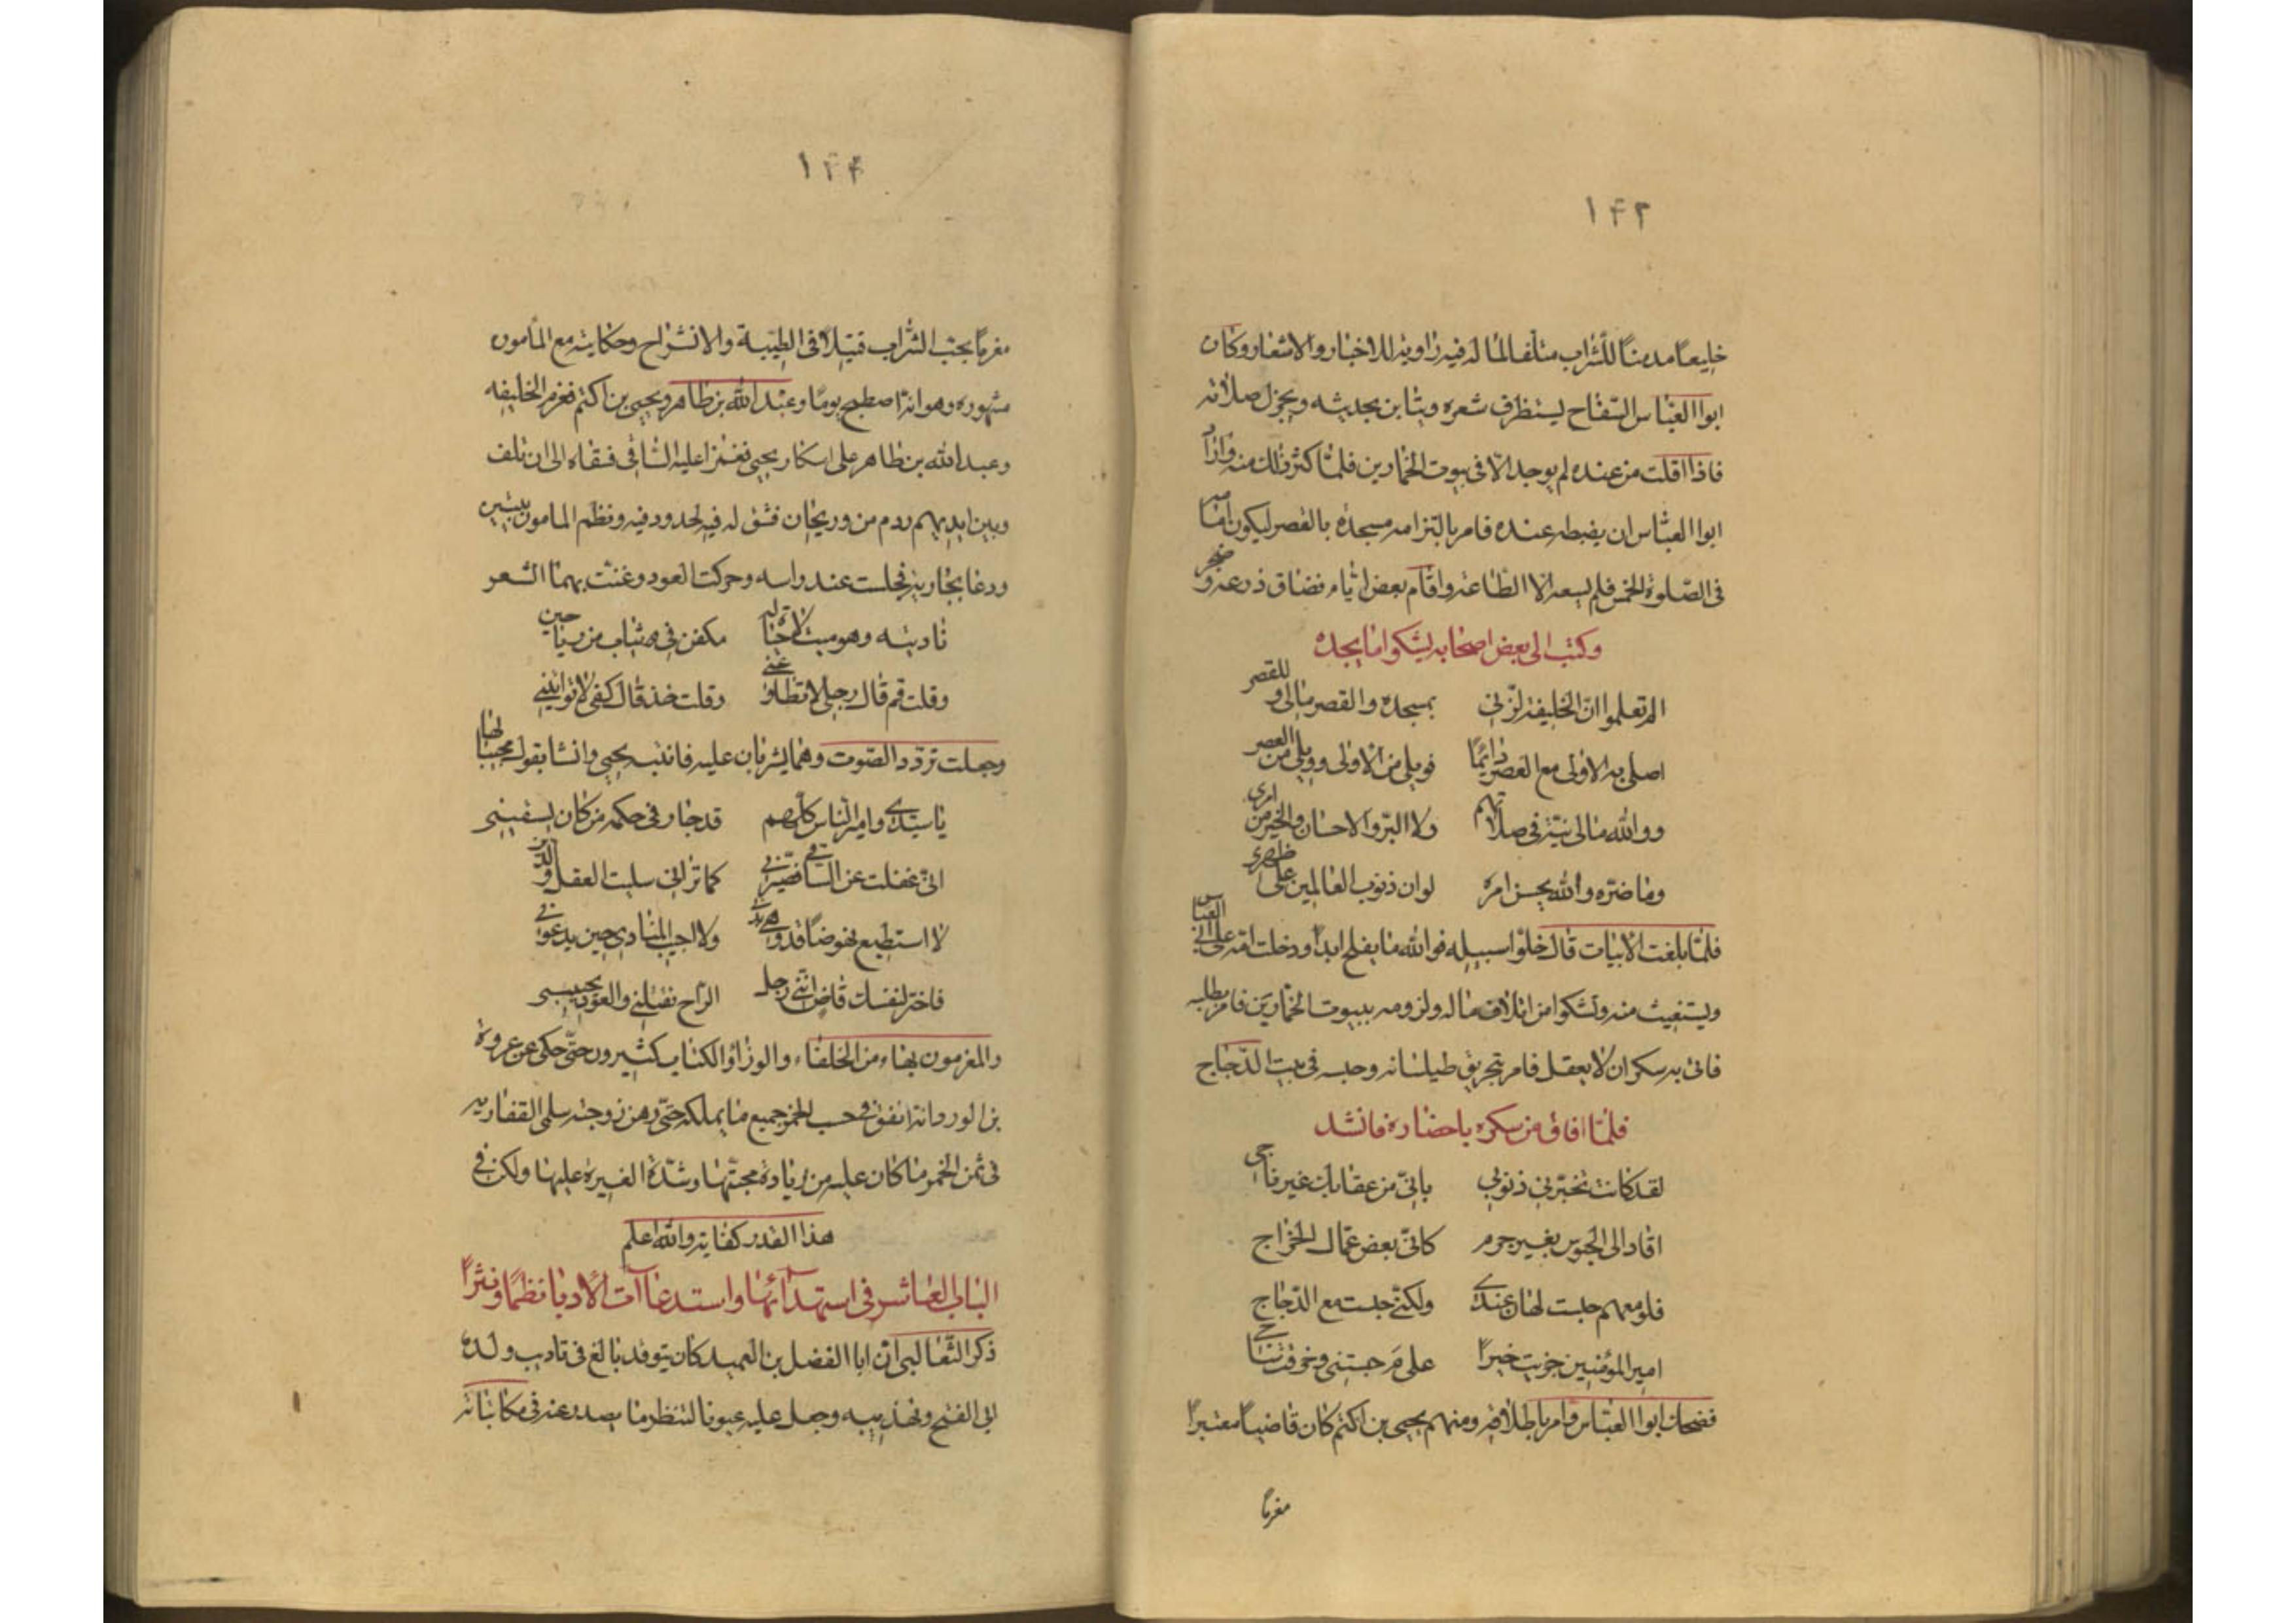 ١٤٣
خليعًا مدمنًا للشراب متلفا لما له فيه زاوية للاخبار والاشعار وكان
ابوا العباس السفاح ليستظرف شعره ويثابن بحديثه ويجزل صلاته
فاذا اقلت من عنده لم يوجد الّا فى بيوت الخمارين فلمّا كثر ذلك منه واراد
ابوا العباس ان يضبطه عنده فامر بالتزامه مسجده بالقصر ليكون امامه
فى الصّلوة الخمس فلم يسعه الّا الطاعة واقام بعض ايّام فضاق ذرعه وضجر
وكتب الى بعض اصحابه يشكوا ما يجده
الم تعلموا انّ الخليفة لزّنى بمسجده والقصر مالى وللقصر
اصلى به الاولى مع العصر دايمًا فويلى من الاولى وويلى من العصر
ووالله مالى نيّة فى صلاتهم ولا البرّ والاحسان والخير من امرى
وما ضرّه والله يحسن امره لو ان ذنوب العالمين على ظهرى
فلمّا بلغت الابيات قال خلّوا سبيله فوالله ما يفلح ابدًا ودخلت امّه على ابى العباس
وليستغيث منه وتشكوا من اتلاف ماله ولزومه ببيوت الخمّارين فامر بطلبه
فاتى به سكران لا يعقل فامر بتخريق طيلسانه وحبسه فى بيت الدّجاج
فلمّا افاق من سكره باحضاره فانشد
لقد كانت تخبّرنى ذنوبى بانّى من عقابك غير ناجى
اقاد الى الحبوس بغير جرم كانّى بعض عمّال الخراج
فلو معهم حبست لهان عندى ولكنّى حبست مع الدّجاج
امير المؤمنين جزيت خيرًا على مَ حبستنى وخرقت ساجى
فضحك ابوا العبّاس وامر باطلاقه ومنهم يحيى بن اكثم كان قاضيًا معتبرًا
مغرمًا
١٤٤
مغرمًا بحبّ الشراب قتيلاً فى الطيبة والانشراح وحكايته مع المأمون
مشهوره وهو انه اصطبح يومًا وعبد الله بن طاهر ويحيى بن اكثم فغمز الخليفه
وعبد الله بن طاهر على اسكار يحيى فغمزا عليه السّاقى فسقاه الى ان تلف
وبين ايديهم ردم من ورد وريحان فشق له فيه لحد ودفنه ونظم المامون بيتين
ودعا بجارية فجلست عند راسه وحركت العود وغنّت بهما الشعر
ناديته وهو ميت لا حراك له مكفن فى ثياب من رياحين
وقلت قم قال رجلى لا تطاوعنى وقلت خذ قال كفى لا تواتينى
وجعلت تردّد الصّوت وهما يشربان عليه فانتبه يحيى وانشا يقول مجيبا لها
يا سيّدى وامير الناس كلّهم قد جار فى حكمه من كان يسقينى
انّى غفلت عن السّاقى فصيّرنى كما ترانى سليب العقل والدّين
لا استطيع نهوضًا قد وهى بدنى ولا اجيب المنادى حين يدعونى
فاختر لنفسك قاض انّنى رجل الرّاح تقتلنى والعود يحيينى
والمغرمون بها من الخلفاء والوزراء والكتاب كثيرون حتّى حكى عن عروة
بن الورد انه انفق فى حب الخمر جميع ما يملكه حتّى رهن زوجته سلمى الغفاريه
فى ثمن الخمر ما كان عليه من زيادة محبّتها وشدّة الغيرة عليها ولكن فى
هذا القدر كفاية والله اعلم
الباب العاشر فى استهدائها واستدعاآت الأدبا نظمًا ونثرًا
ذكر الثعالبى ان ابا الفضل بن العميد كان يتوقد بالغ فى تاديب ولده
ابى الفتح وتهذيبه وجعل عليه عيونا لتنظر ما يصدر عنه فى مكاتباته